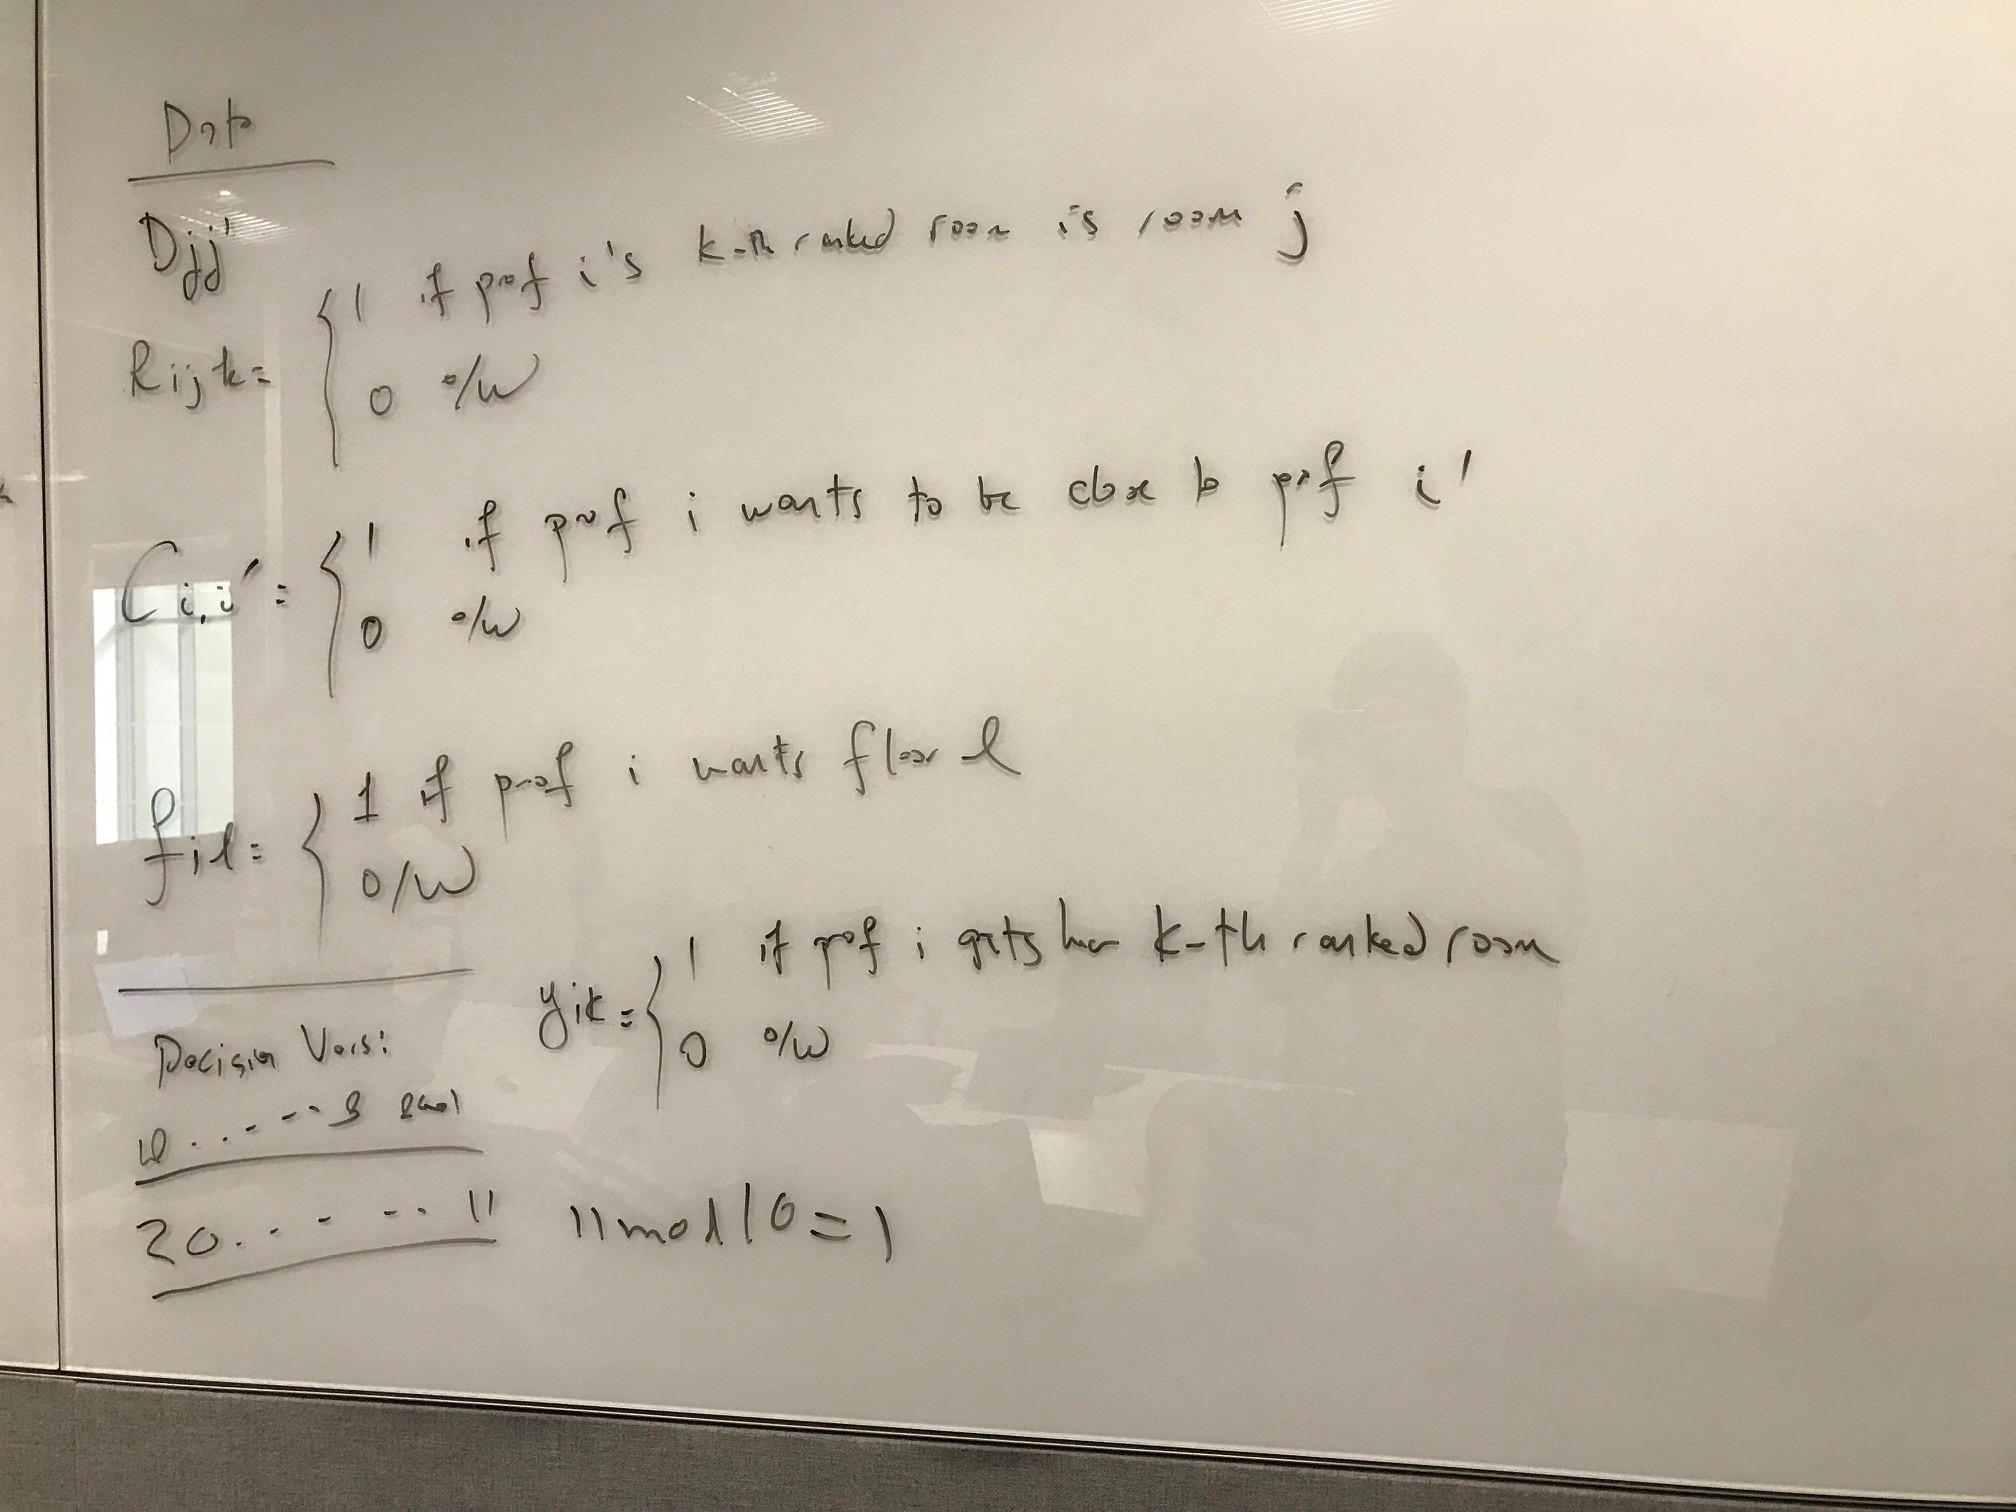 Data
Djj'
Rijk = { 1 if prof i's k-th ranked room is room j
0 o/w
Ci,i' = { 1 if prof i wants to be close to prof i'
0 o/w
fil = { 1 if prof i wants floor l
0/W
yik = { 1 if prof i gets her k-th ranked room
0 o/w
Decision Vars:
10 . . . - - -
20 . . - - - - . 11 11 mod 10 = 1